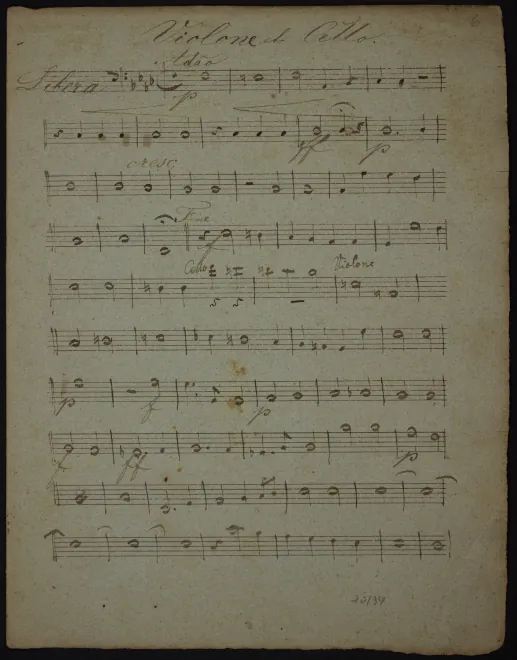 6
Violone è Cello.
Libera
Ad:o
p
ff p
cresc
Fine
f
Cello Violone
p f p
f ff p
20/34